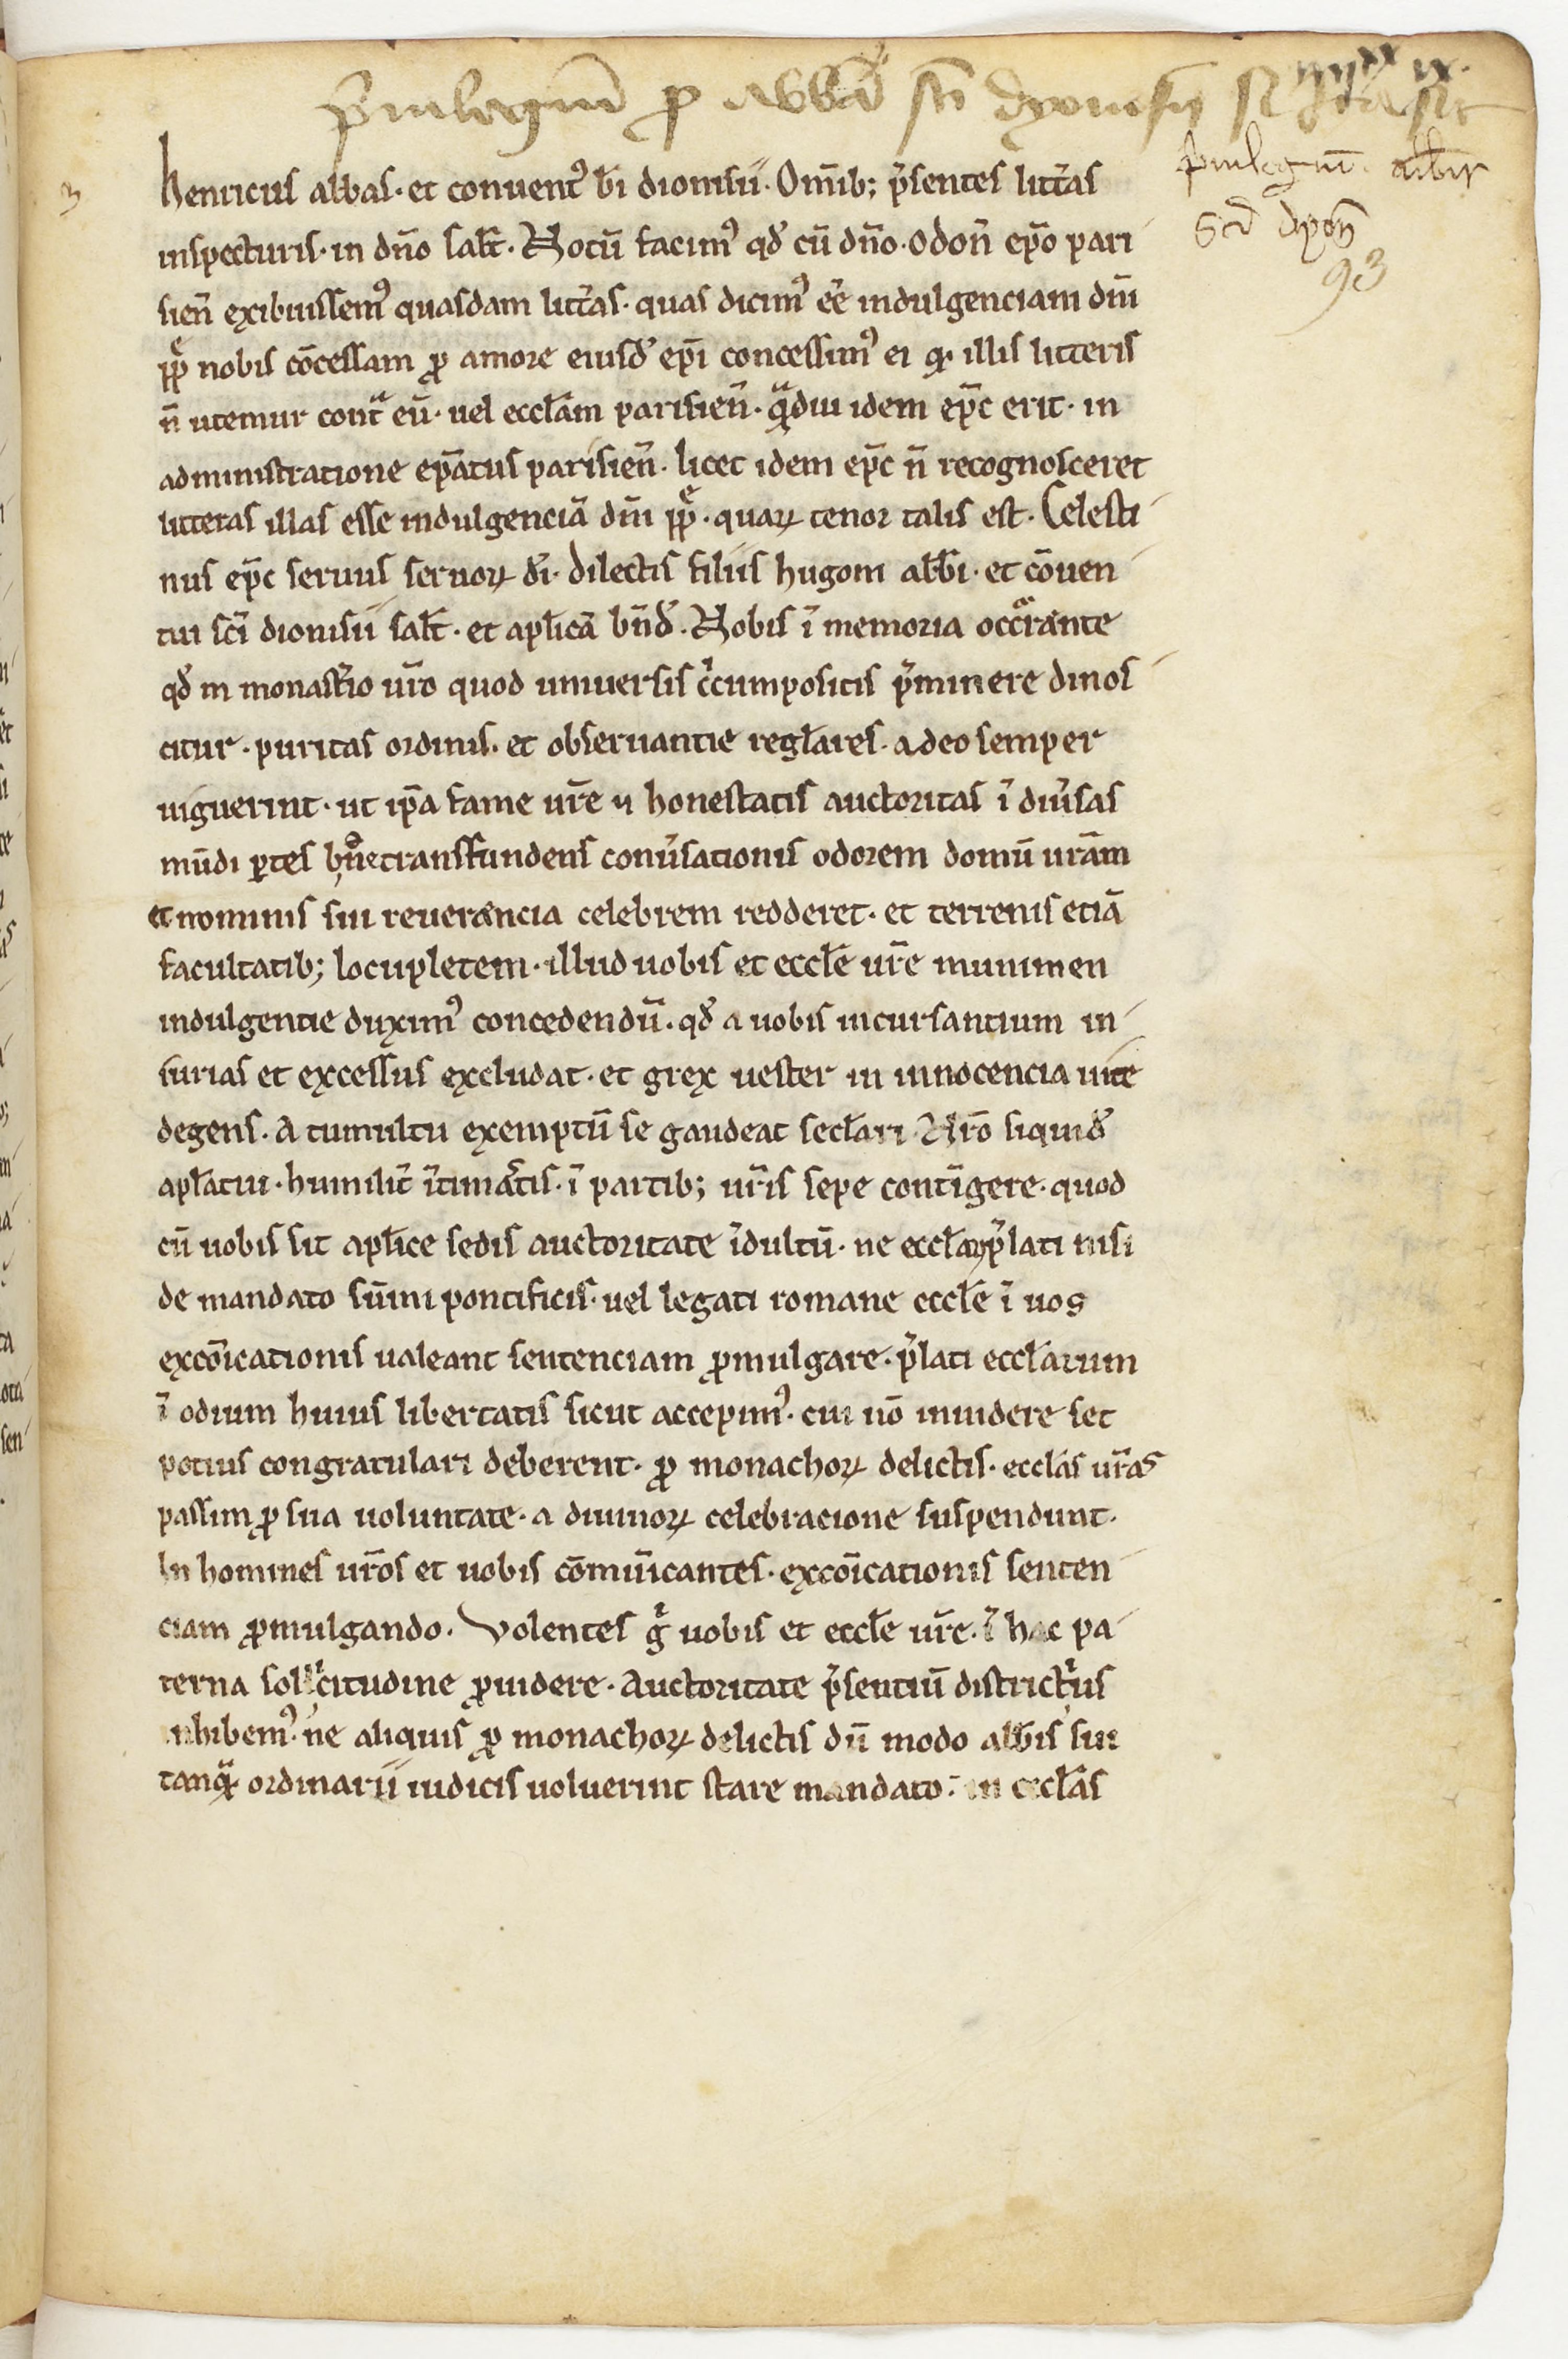 Priuilegiũ ꝓ abbā sc̃i dyonisii
Priuilegiũ abbis
Scī dyoñ
93
3
henricus abbas · et conuentꝰ b̃i dionisii · Om̃ib; p̃sentes litt̃as
inspecturis · in dño sal̃t · Notũ facimꝰ qđ cũ dño · odoñ ep̃o pari
sieñ exibuissemꝰ quasdam litt̃as · quas dicimꝰ ẽe indulgenciam dñi
pp̃e nobis cõcessam ꝓ amore eiusđ ep̃i concessimꝰ ei ꝙ · illis litteris
ñ utemur contᵃ eũ · uel eccl̃am parisieñ · qᵃ̃diu idem ep̃c erit · in
administratione ep̃atus parisieñ · licet idem ep̃c ñ recognosceret
litteras illas esse indulgenciã dñi pp̃e · quaꝝ tenor talis est · Celesti
nus ep̃c seruus seruoꝝ đi · dilectis filiis hugoni abb̃i · et cõuen
tui sc̃i dionisii sal̃t · et apl̃icã bñđ · Nobis ĩ memoria occᵃrante
qđ in monast̃io ur̃o quod uniuersis cⁱcumpositis p̃minere dinos
citur · puritas ordinis · et obseruantie regl̃ares · adeo semper
uiguerint · ut ip̃a fame ur̃e ⁊ honestatis auctoritas ĩ diũsas
mũdi ꝑtes bñe transfundens conũsationis odorem domũ ur̃am
et nominis sui reuerencia celebrem redderet · et terrenis etiã
facultatib; locupletem · illud uobis et eccl̃e ur̃e munimen
indulgentie duximꝰ concedendũ · qđ a uobis incursantium in
iurias et excessus excludat · et grex uester in innocencia uite
degens · A tumultu exemptũ se gaudeat secl̃ari · Nr̃o siquiđ
apl̃atui · humilit̃ ĩtimastis · ĩ partib; ur̃is sepe contĩgere · quod
cũ uobis sit apl̃ice sedis auctoritate ĩdultũ · ne eccl̃aꝝ p̃lati nisi
de mandato sũmi pontificis · uel legati romane eccl̃e ĩ uos
excõicationis ualeant sentenciam ꝓmulgare · p̃lati eccl̃arum
ĩ odium huius libertatis sicut accepimꝰ · cui nõ inuidere set
potius congratulari deberent · ꝓ monachoꝝ delictis · eccl̃as ur̃as
passim ꝓ sua uoluntate · a diuinoꝝ celebracione suspendunt ·
In homines ur̃os et uobis cõmũicantes · excõicationis senten
ciam ꝓmulgando · Volentes gⁱ uobis et eccl̃e ur̃e · ĩ hac pa
terna sollicitudine ꝓuidere · Auctoritate p̃sentiũ districtius
inhibemꝰ · ne aliquis ꝓ monachoꝝ delictis dũ modo abb̃is sui
tanqᵃ̃ ordinarii iudicis uoluerint stare mandato · in eccl̃as